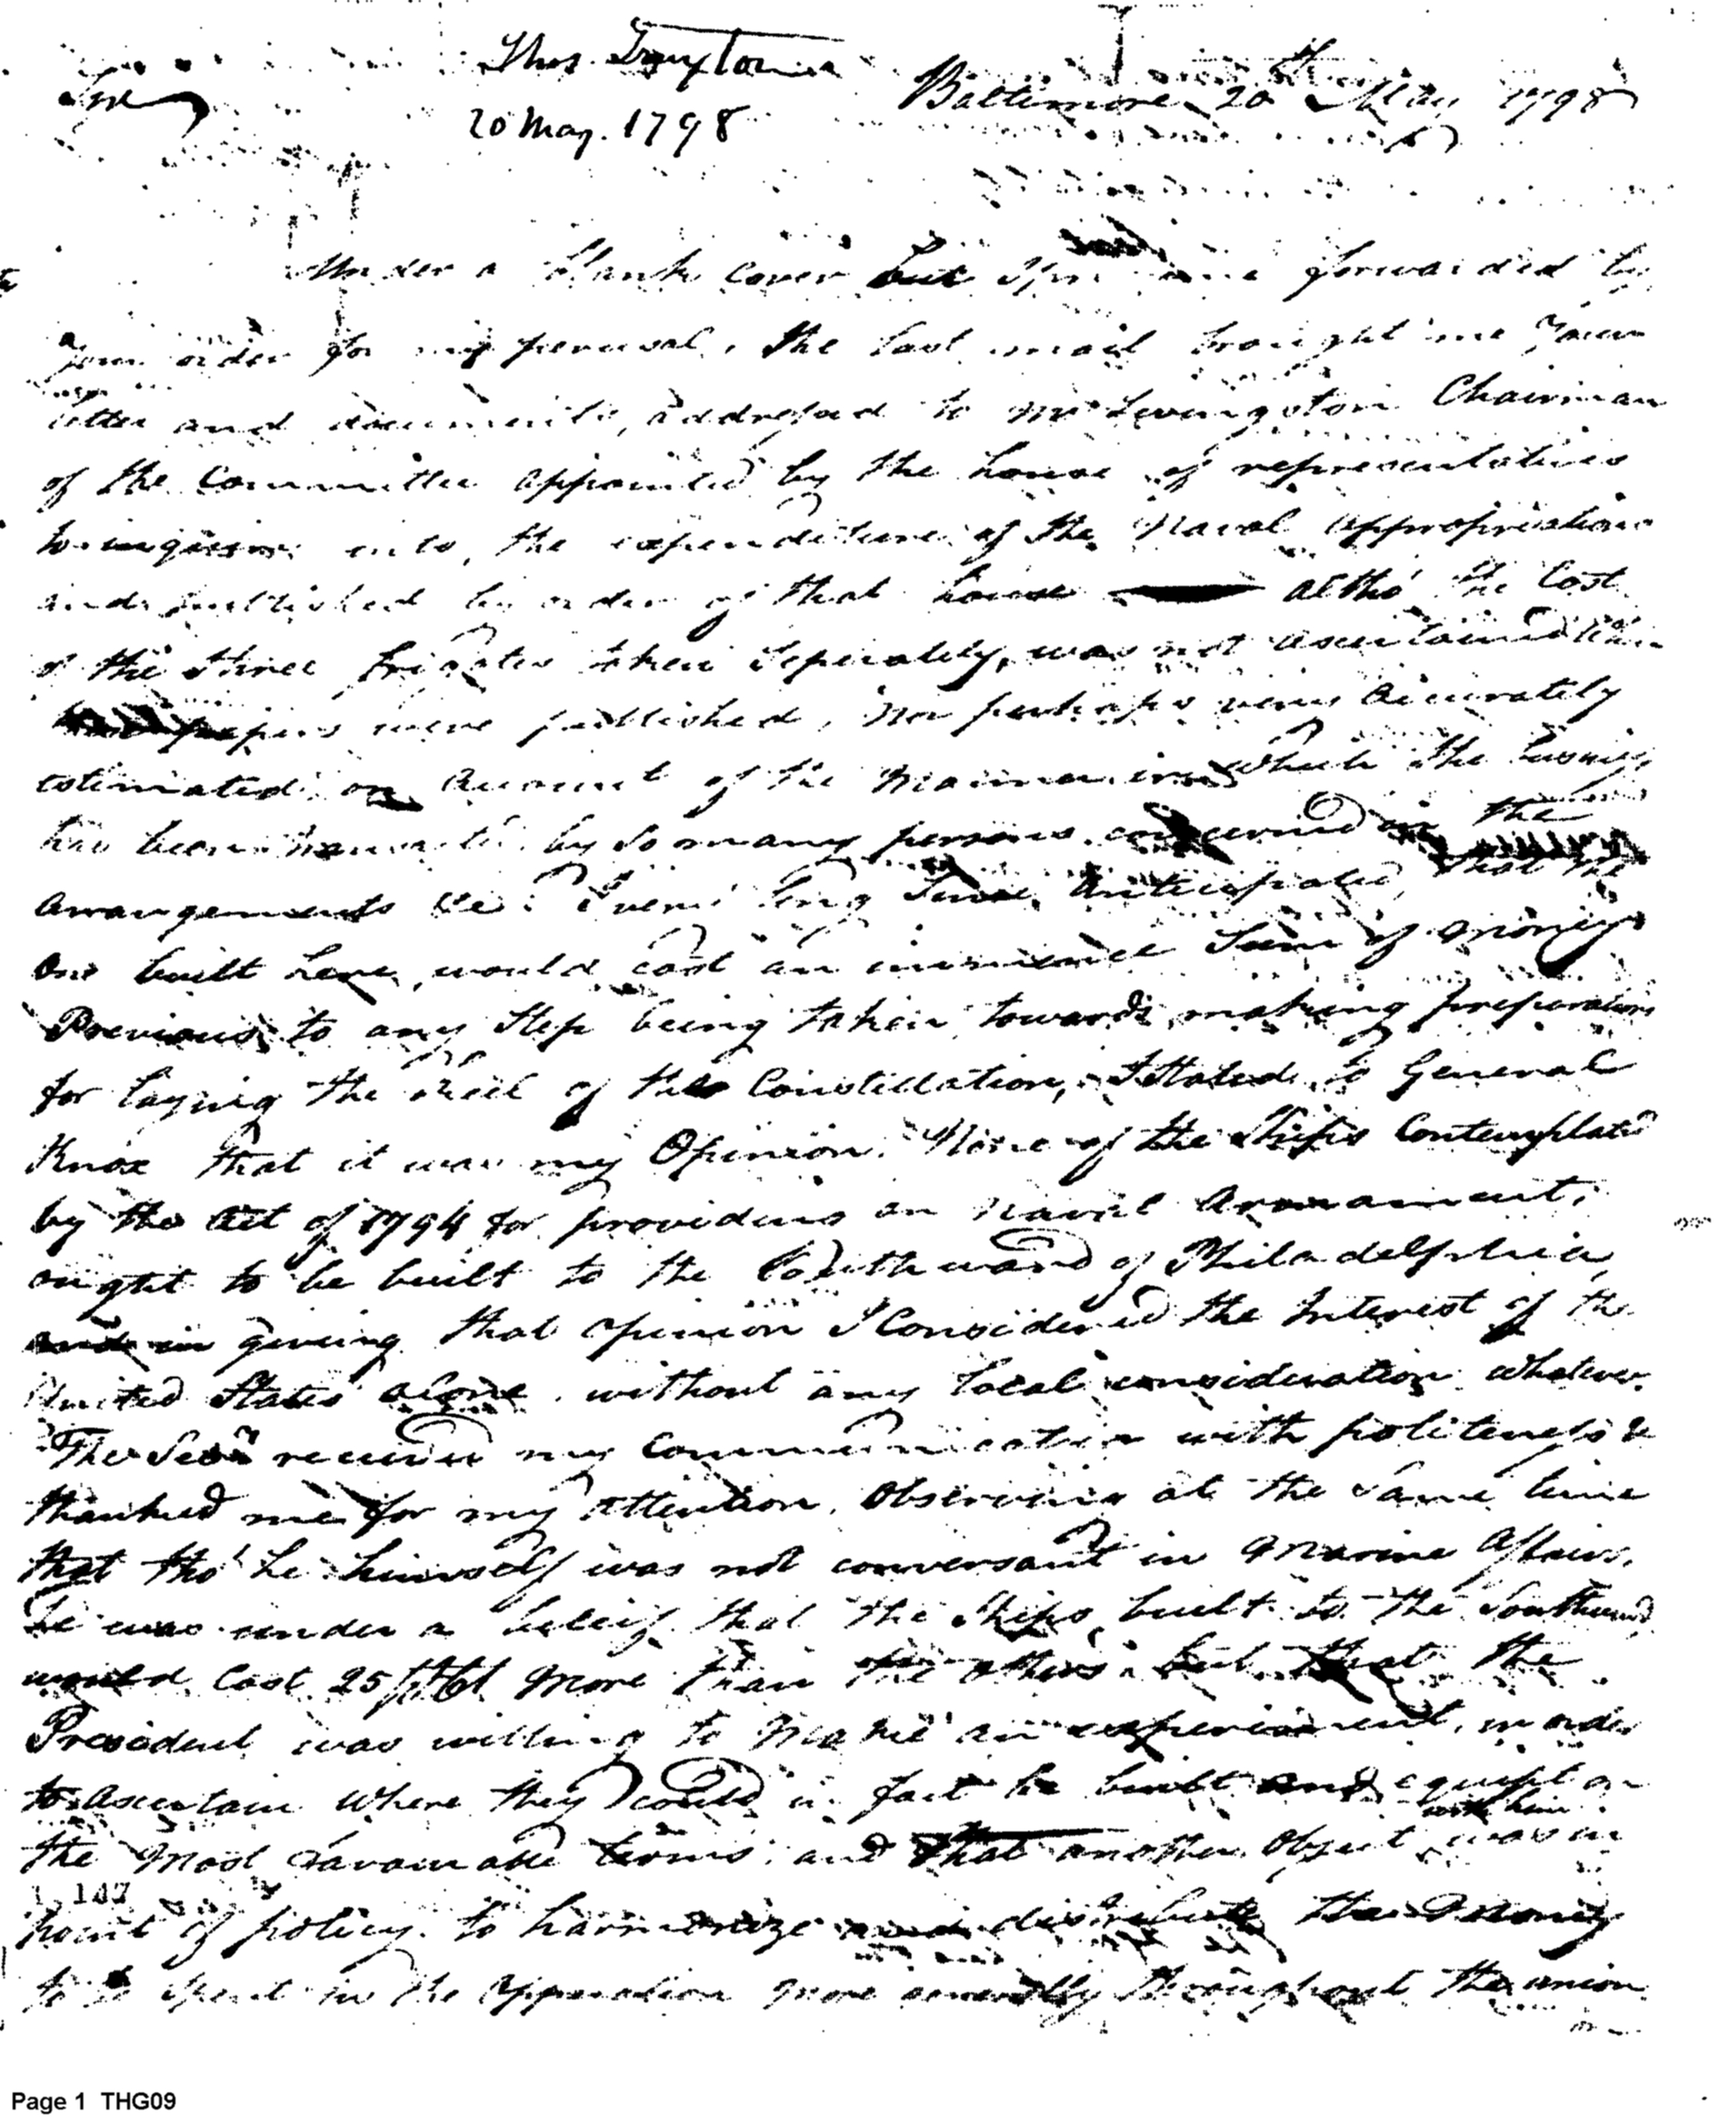 Thos. Truxton
Baltimore 20th May 1798
Sir
20 May. 1798
Under a blank cover but forwarded by
your order for my perusal, the last mail brought me Your
letter and documents, addressed to Mr Livingston Chairman
of the Committee appointed by the house of representatives
to inquire into, the expenditure of the Naval appropriations
and published by order of that house altho' the Cost
of the three frigates taken Seperately, was not ascertained
papers were published, nor perhaps very accurately
estimated on account of the Manner in which the business
has been by So many persons concerned in the
arrangements &c. I even long Since, anticipated, that the
One built here, would cost an immence Sum of Money
Previous to any Step being taken towards making preparations
for laying the keel of the Constellation, I Stated to General
Knox that it was my Opinion. None of the Ships Contemplated
by the act of 1794 for providing an Naval Armament,
ought to be built to the Southward of Philadelphia,
and in giveing that opinion I Considered the Interest of the
United States alone, without any local consideration whatever.
The Secy received my Communication with politeness &
thanked me for my attention, Observing at the Same time
that tho' he himself was not conversant in Marine Affairs,
he was under a beleif that the Ships built to the Southward
would Cost 25 more than the others but that the
President was willing to Make an experiment, in order
to ascertain Where they could in fact be built and equipt on
with him
the Most favourable terms, and that another Object was in
1,147
point of policy. to harmonize distribute the Money
to be Spent in the opperation more generally throughout the union
Page 1 THG09